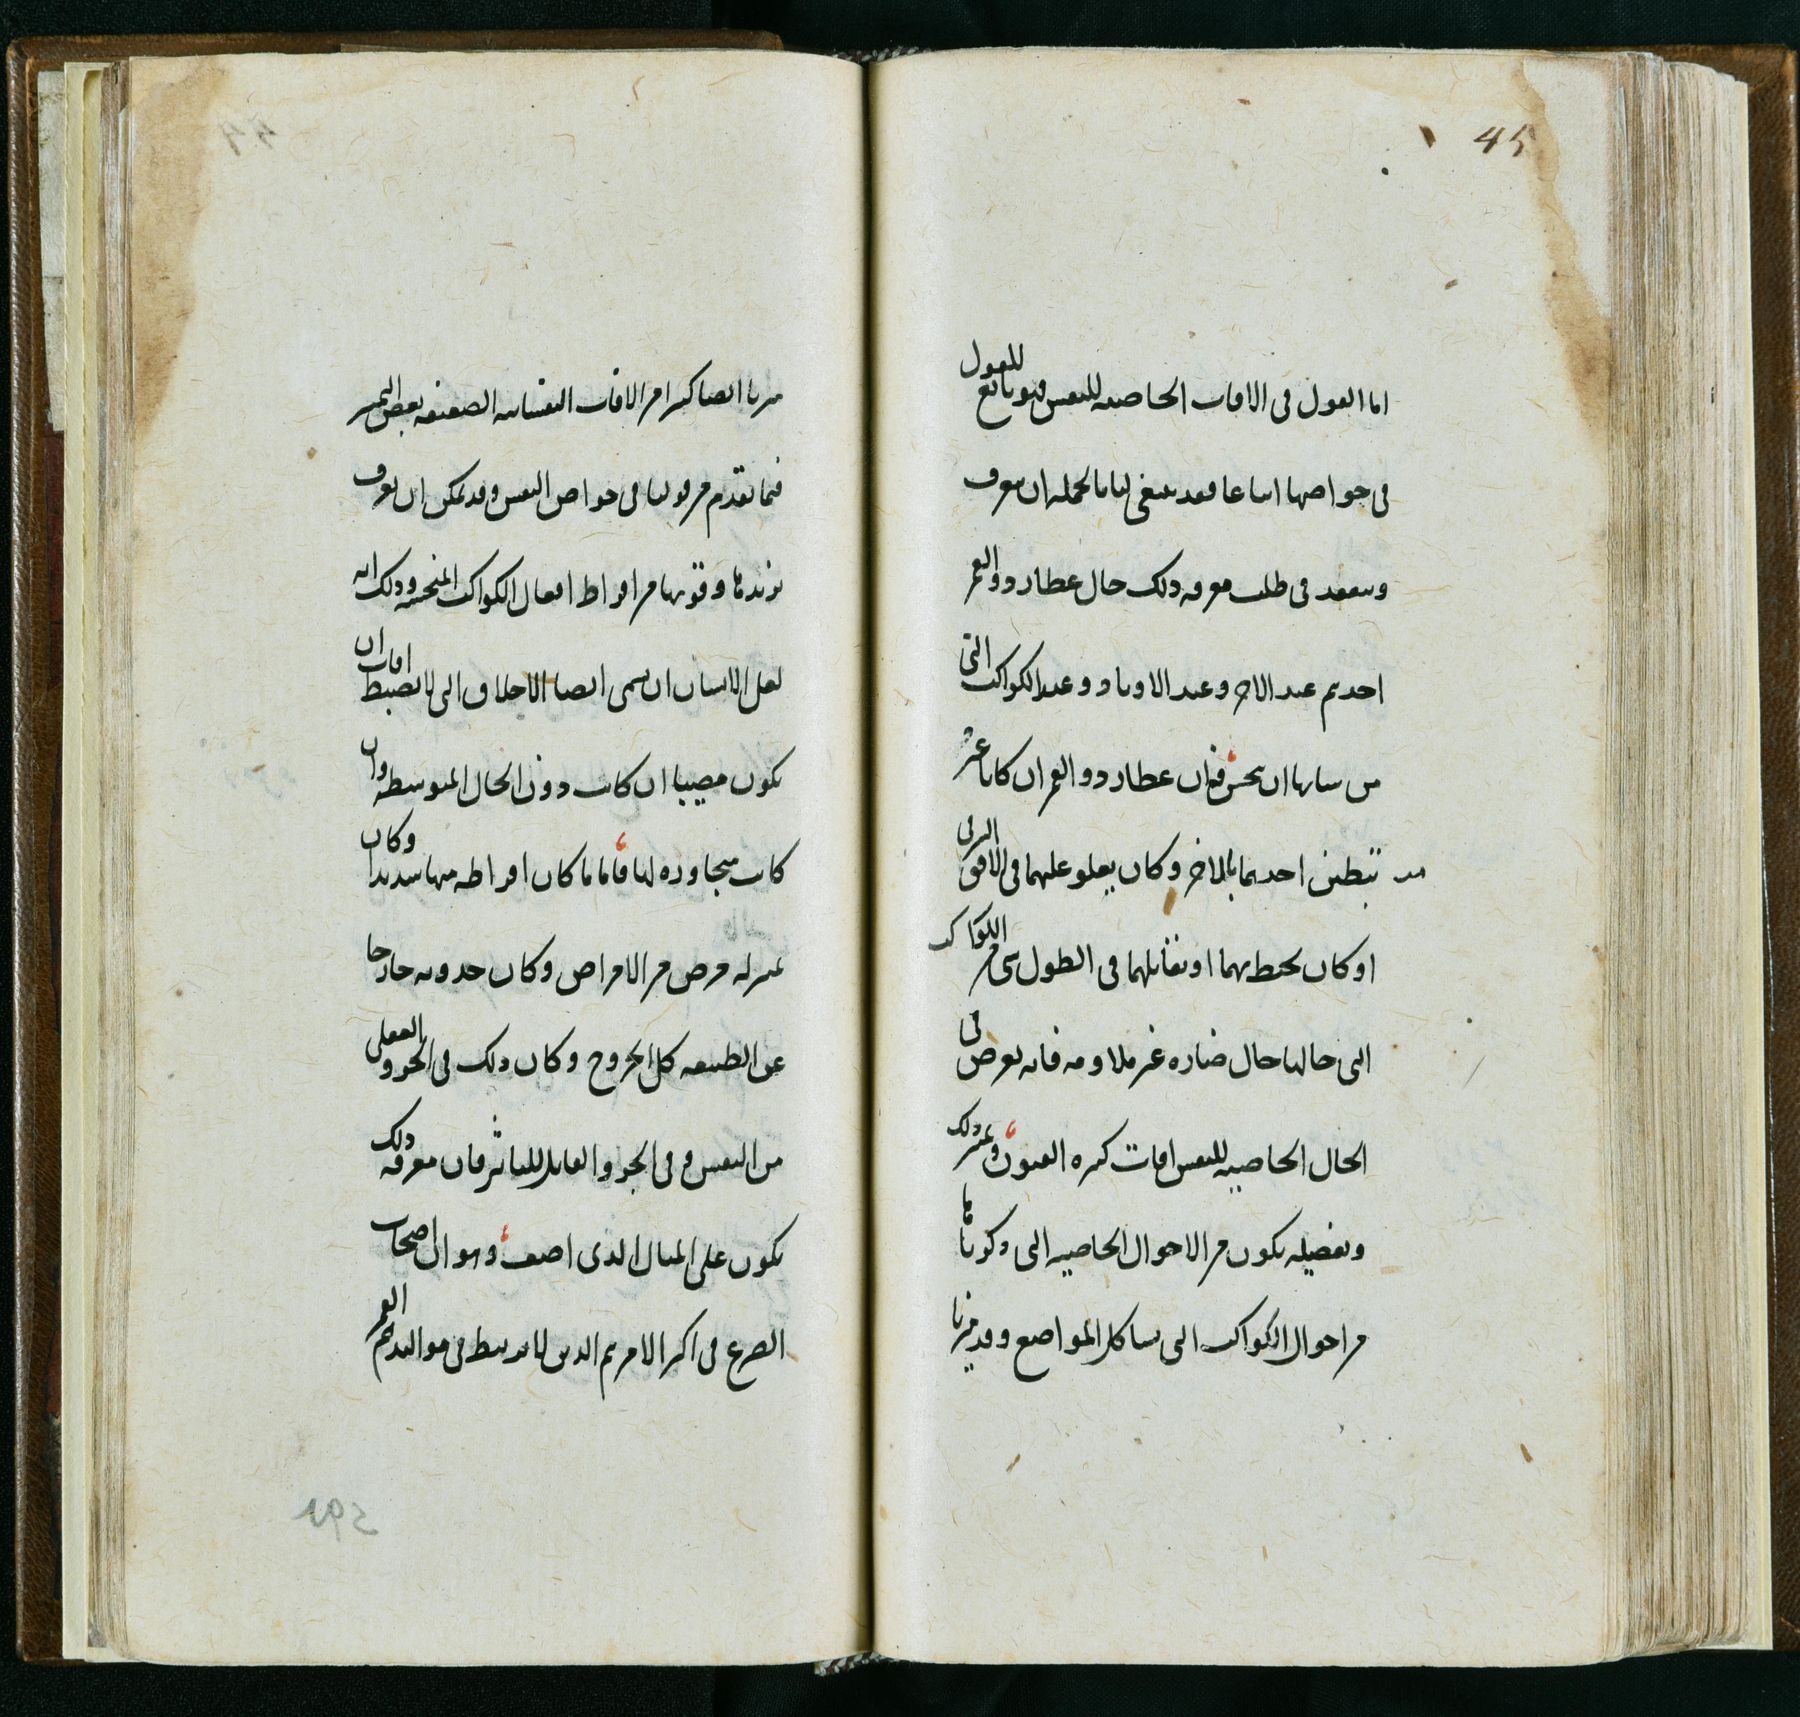 45
اما القول فى الافات الخاصيه للنفس فهو تابع للقول
فى خواصها اتباعا فقد ينبغى لنا بالجمله ان نعرف
ونتفقد فى طلب معرفه ذلك حال عطارد والقمر
احدهم عند الاخر وعند الاوتاد وعند الكواكب التى
من سانها ان تنحس فان عطارد والقمر ان كانا غير
متبطنين احدهما بالاخر وكان يعلو عليهما فى الافق الشرقى
او كان يحيط بهما او يقابلهما فى الطول شى من الكواكب
التى حالها حال ضاره غير ملاومه فانه يعرض فى
الحال الخاصيه للنفس افات كثيره الفنون وتمييز ذلك
وتفصيله يكون من الاحوال الخاصيه التى ذكرناها
من احوال الكواكب التى تشاكل المواضع وقد ميزنا
ميزنا ايضا كثيرا من الافات النفسانيه الضعيفه بعض التمييز
فيما تقدم من قولنا فى خواص النفس وقد يمكن ان نعرف
تزيدها وقوتها من افراط افعال الكواكب المنحسه وذلك انه
لعل الانسان ان يسمى ايضا الاخلاق التى لا تضبط افات ان
يكون مصيبا ان كانت دون الحال المتوسطه وان
كانت متجاوزه لها فاما ما كان افراطه منها شديدا وكان
بمنزله مرض من الامراض وكان حدوثه خارجا
عن الطبيعه كل الخروج وكان ذلك فى الجزو العقلى
من النفس و فى الجزو القابل للتاثير فان معرفه ذلك
يكون على المثال الذى اصف وهو ان اصحاب
الصرع فى اكثر الامر هم الذين لا يرتبط فى مواليدهم القمر